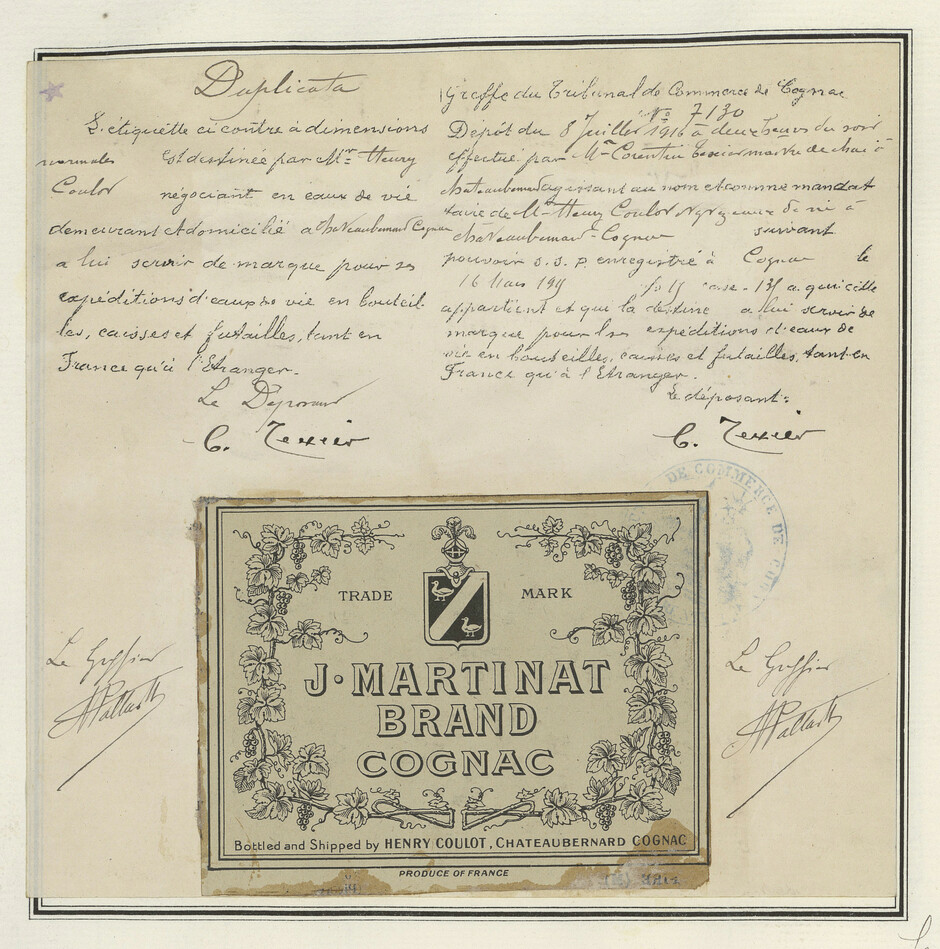 Duplicata
L'étiquette ci contre à dimensions
normales est destinée par Mr Henry
Coulot négociant en eaux de vie
demeurant et domicilié a Chateaubernard Cognac
a lui servir de marque pour ses
expéditions d'eaux de vie en bouteil-
les, caisses et futailles, tant en
France qu'à l'Etranger.
Le Déposant
C. Texier
Greffe du Tribunal de Commerce de Cognac
No 7130
Dépôt du 8 Juillet 1916 à deux heures du soir
effectué par Mr Corentin Texier maitre de chai à
chateaubernard agissant au nom et comme mandat
taire de Mr Henry Coulot Ngt eaux de vie à
chateaubernard-Cognac suivant
pouvoir s.s.p. enregistré à Cognac le
16 Mars case a qui elle
appartient et que la destine a lui servir de
marque pour les expéditions d'eaux de
vie en bouteilles, caisses et futailles, tant en
France qu'à l'Etranger.
Le déposant:
C. Texier
DE COMMERCE DE
TRADE MARK
J·MARTINAT
BRAND
COGNAC
Bottled and Shipped by HENRY COULOT, CHATEAUBERNARD COGNAC
PRODUCE OF FRANCE
Le Greffier
Le Greffier